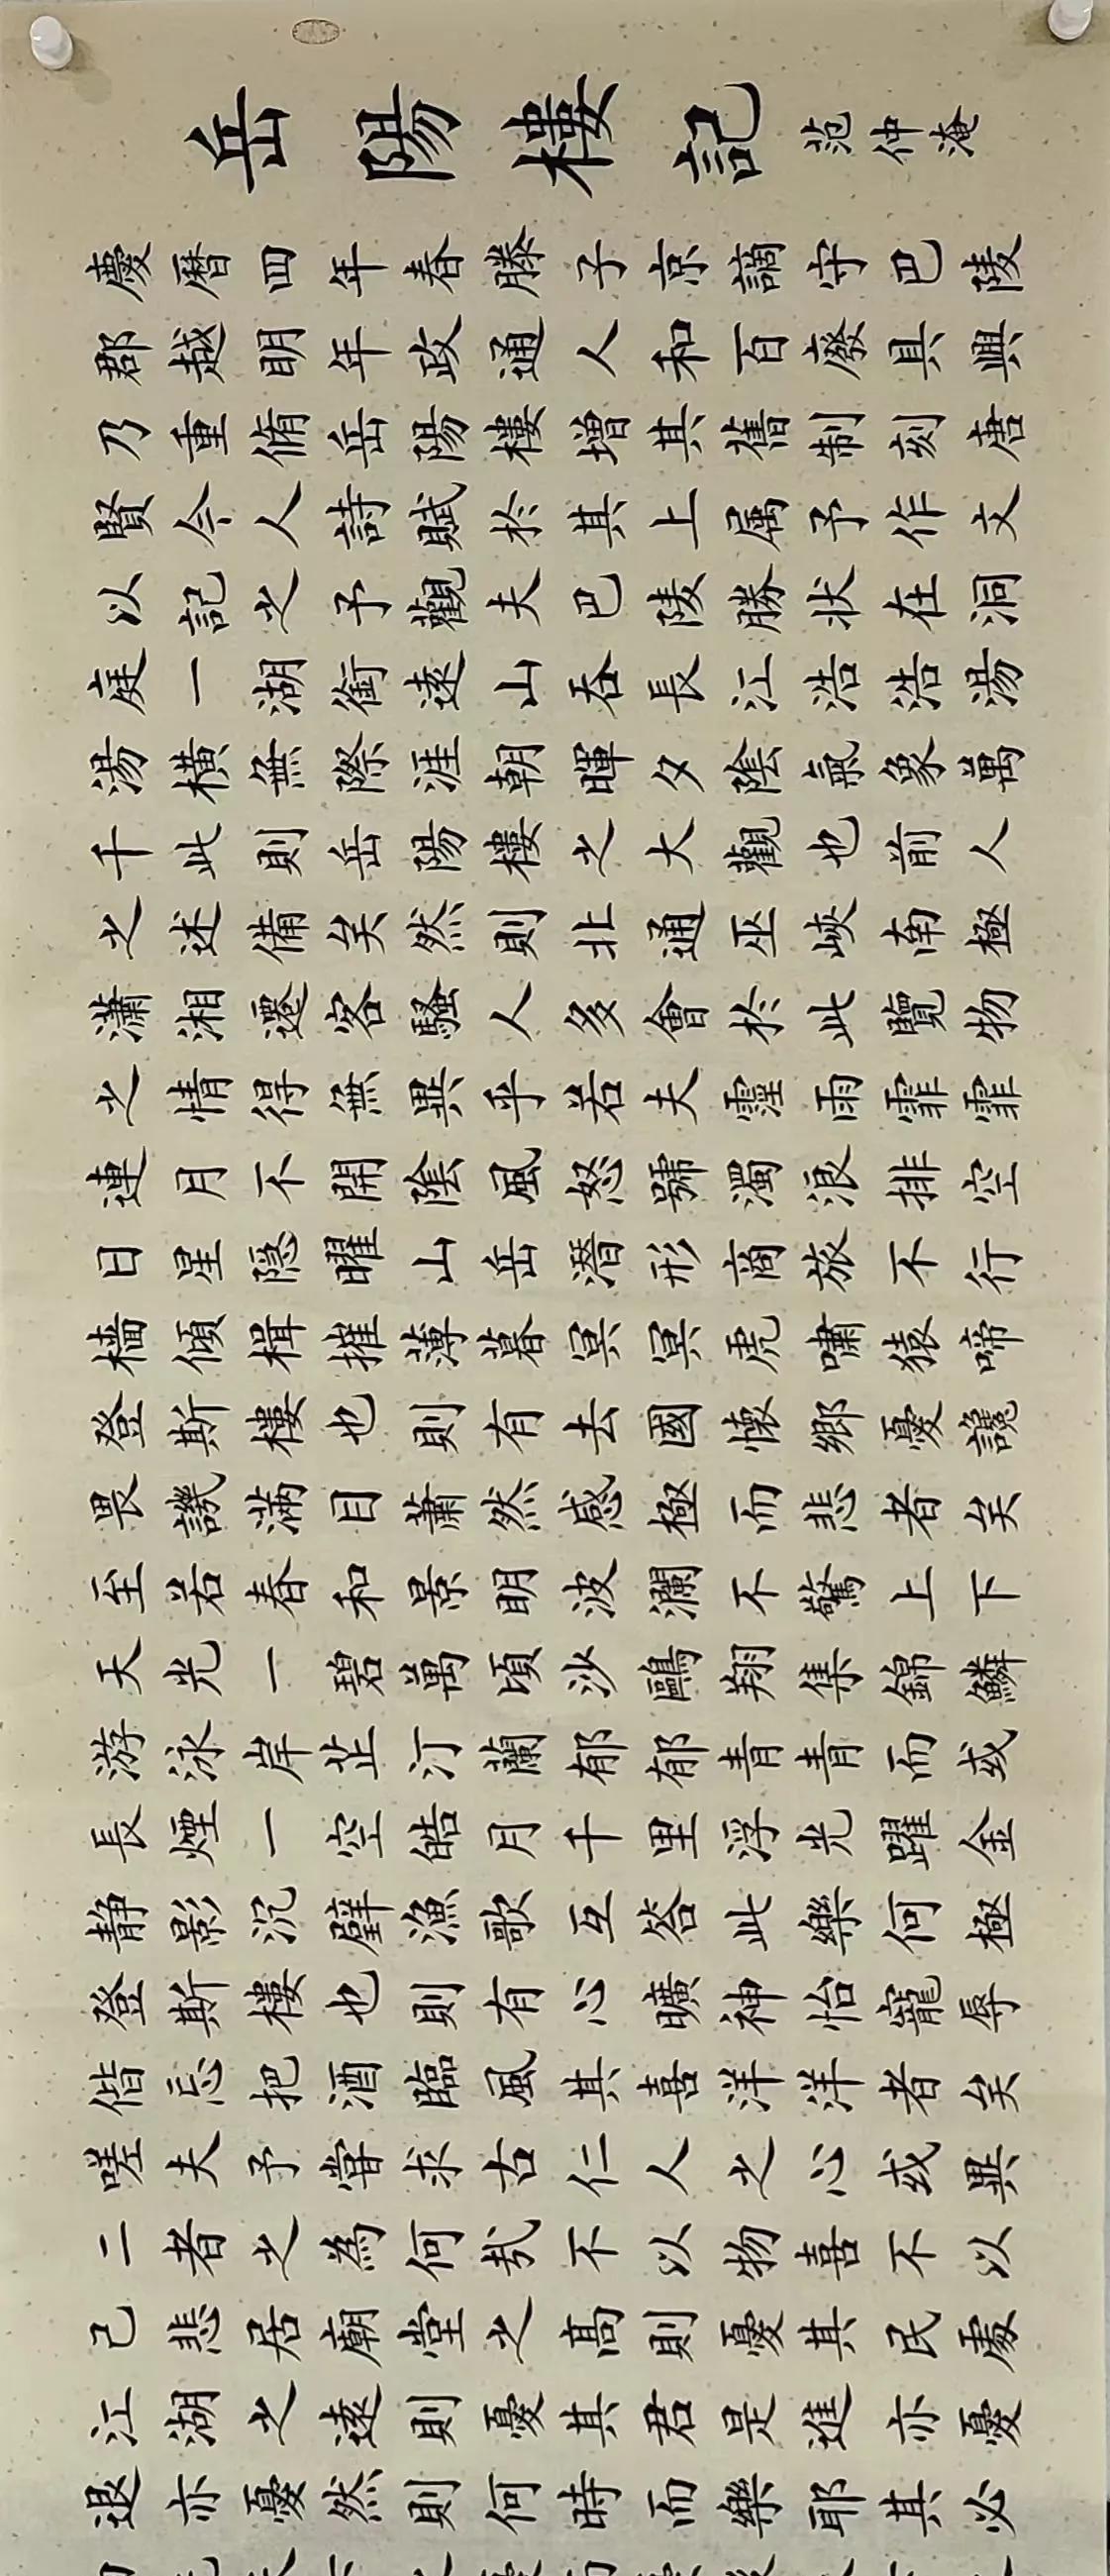 岳陽樓記 范仲淹
慶曆四年春滕子京謫守巴陵
郡越明年政通人和百廢具興
乃重脩岳陽樓增其舊制刻唐
賢今人詩賦於其上属予作文
以記之予觀夫巴陵勝状在洞
庭一湖銜遠山吞長江浩浩湯
湯横無際涯朝暉夕陰氣象萬
千此則岳陽樓之大觀也前人
之述備矣然則北通巫峽南極
瀟湘遷客騷人多會於此覽物
之情得無異乎若夫霪雨霏霏
連月不開陰風怒號濁浪排空
日星隱曜山岳潛形商旅不行
檣傾楫摧薄暮冥冥虎嘯猿啼
登斯樓也則有去國懷鄉憂讒
畏譏滿目蕭然感極而悲者矣
至若春和景明波瀾不驚上下
天光一碧萬頃沙鷗翔集錦鱗
游泳岸芷汀蘭郁郁青青而或
長煙一空皓月千里浮光躍金
静影沉璧漁歌互答此樂何極
登斯樓也則有心曠神怡寵辱
偕忘把酒臨風其喜洋洋者矣
嗟夫予嘗求古仁人之心或異
二者之為何哉不以物喜不以
己悲居廟堂之高則憂其民處
江湖之遠則憂其君是進亦憂
退亦憂然則何時而樂耶其必